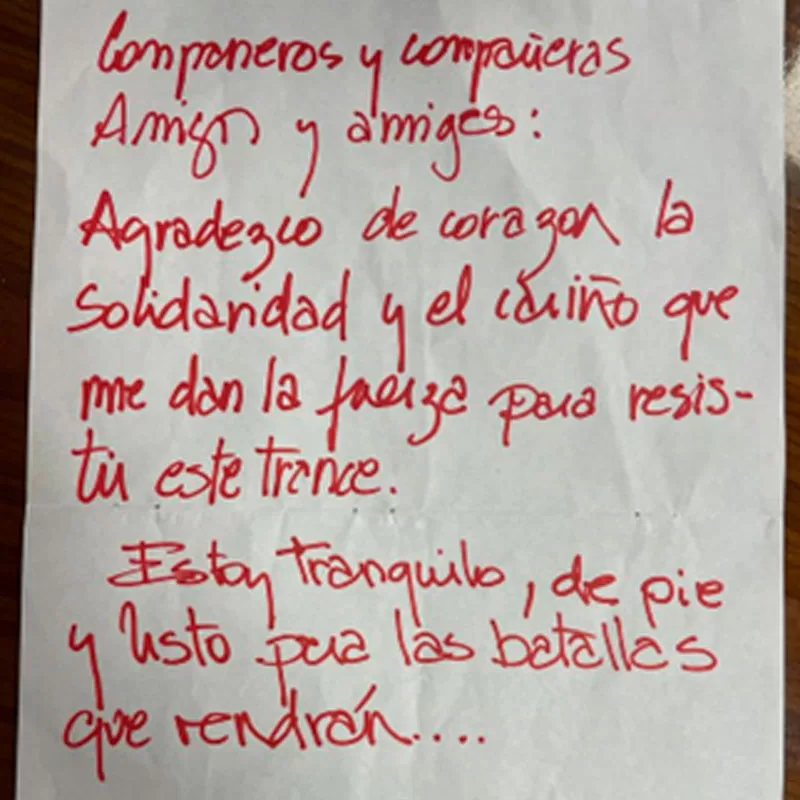 Compañeros y compañeras
Amigos y amigas:
Agradezco de corazon la
solidaridad y el cariño que
me dan la fuerza para resis-
tir este trance.
Estoy tranquilo, de pie
y listo para las batallas
que vendrán....